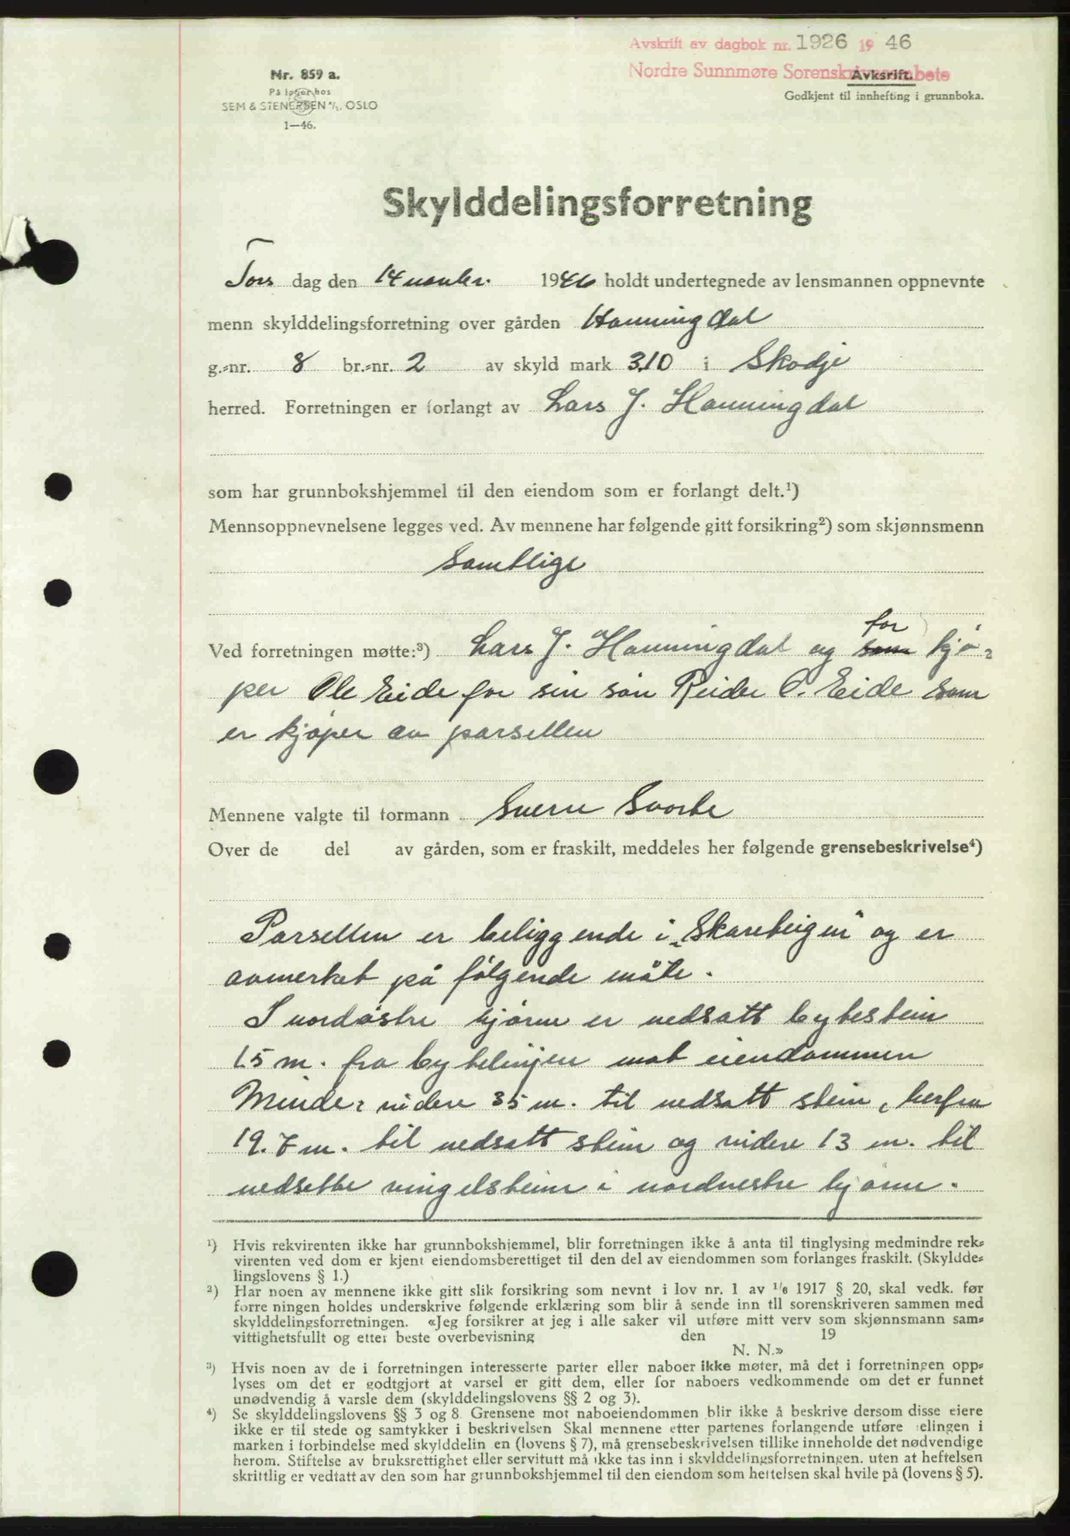 Avskrift av dagbok nr. 1926 19 46
Nordre Sunnmøre Sorenskriverembete
Avskrift.
Godkjent til innhefting i grunnboka.
Nr. 859 a.
På lager hos
SEM & STENERSEN A/S. OSLO
1—46.
Skylddelingsforretning
Tors dag den 14 novbr. 1946 holdt undertegnede av lensmannen oppnevnte
menn skylddelingsforretning over gården Honningdal
g.-nr. 8 br.-nr. 2 av skyld mark 3.10 i Skodje
herred. Forretningen er forlangt av Lars J. Honningdal
som har grunnbokshjemmel til den eiendom som er forlangt delt.¹)
Mennsoppnevnelsene legges ved. Av mennene har følgende gitt forsikring²) som skjønnsmenn
Samtlige
Ved forretningen møtte:³) Lars J. Honningdal og som for kjø-
per Ole Eide for sin søn Reidar O. Eide som
er kjøper av parsellen
Mennene valgte til formann Sverre Svorte
Over de del av gården, som er fraskilt, meddeles her følgende grensebeskrivelse⁴)
Parsellen er beliggende i „Skareteigen" og er
avmerket på følgende måte.
I nordøstre hjørne er nedsatt bytestein
15 m. fra bytelinjen mot eiendommen
Minde, videre 35 m. til nedsatt stein, herfra
19.7 m. til nedsatt stein og videre 13 m. til
nedsatte vingelstein i nordvestre hjørne.
¹) Hvis rekvirenten ikke har grunnbokshjemmel, blir forretningen ikke å anta til tinglysing medmindre rek-
virenten ved dom er kjent eiendomsberettiget til den del av eiendommen som forlanges fraskilt. (Skyldde-
lingslovens § 1.)
²) Har noen av mennene ikke gitt slik forsikring som nevnt i lov nr. 1 av 1/6 1917 § 20, skal vedk. før
forretningen holdes underskrive følgende erklæring som blir å sende inn til sorenskriveren sammen med
skylddelingsforretningen. «Jeg forsikrer at jeg i alle saker vil utføre mitt verv som skjønnsmann sam-
vittighetsfullt og etter beste overbevisning den 19
N. N.»
³) Hvis noen av de i forretningen interesserte parter eller naboer ikke møter, må det i forretningen opp-
lyses om det er godtgjort at varsel er gitt dem, eller for naboers vedkommende om det er funnet
unødvendig å varsle dem (skylddelingslovens §§ 2 og 3).
⁴) Se skylddelingslovens §§ 3 og 8. Grensene mot naboeiendommen blir ikke å beskrive dersom disse eiere
ikke er til stede og samtykker i beskrivelsen Skal mennene etter partenes forlangende utføre delingen i
marken i forbindelse med skylddelingen (lovens § 7), må grensebeskrivelsen tillike inneholde det nødvendige
herom. Stiftelse av bruksrettighet eller servitutt må ikke tas inn i skylddelingsforretningen, uten at heftelsen
skriftlig er vedtatt av den som har grunnbokshjemmel til den eiendom som heftelsen skal hvile på (lovens § 5).